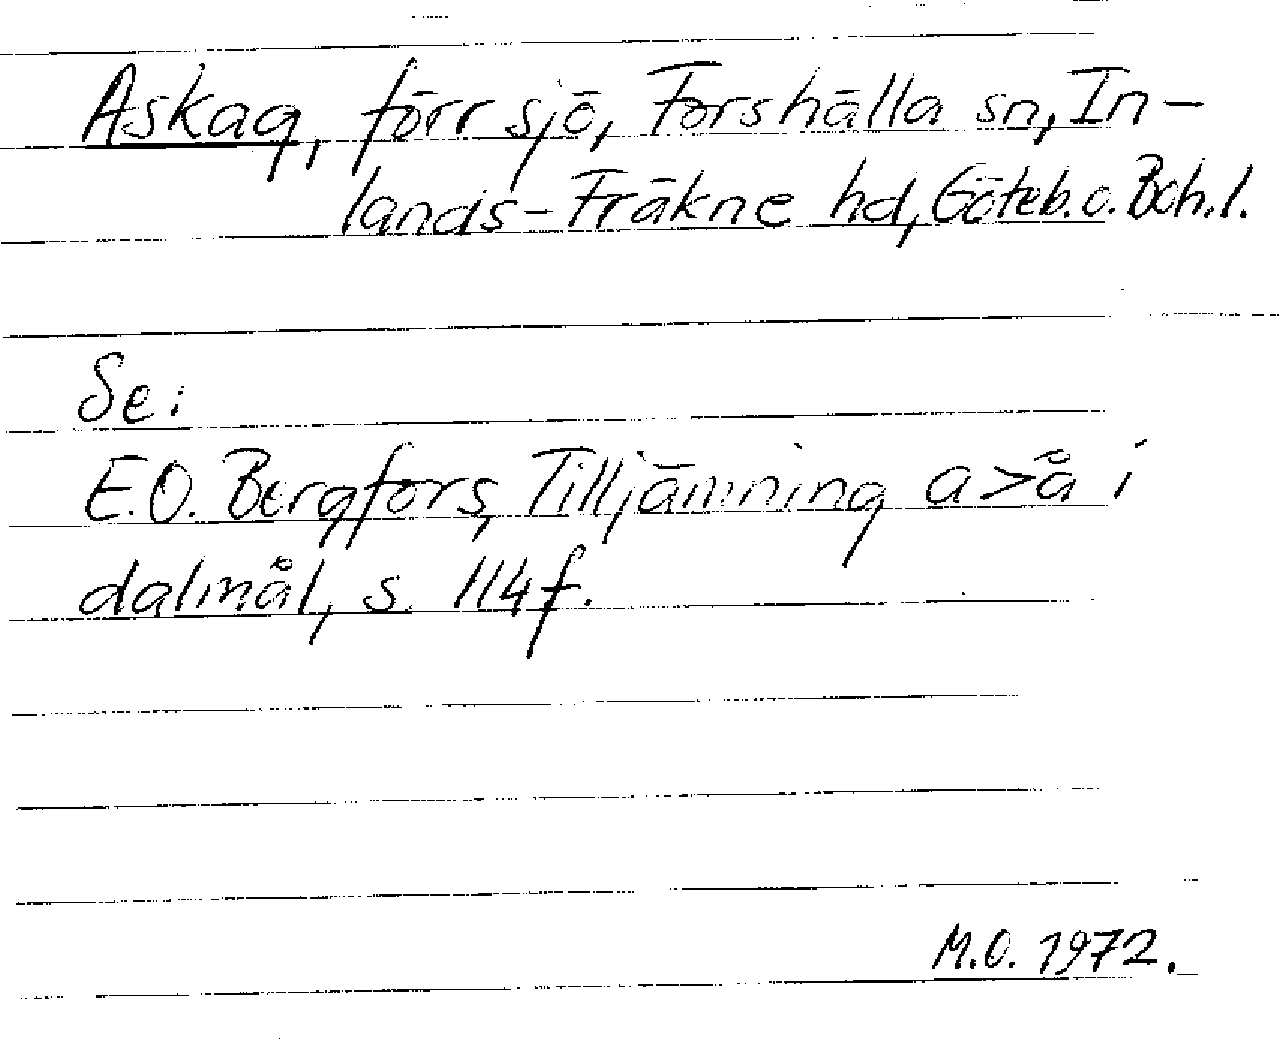 Askag, förr sjö, Forshälla sn, In-
lands-Fräkne hd, Göteb. o. Boh. l.
Se:
E.O. Bergfors, Tilljämning a>å i
dalmål, s. 114 f.
M.O. 1972.